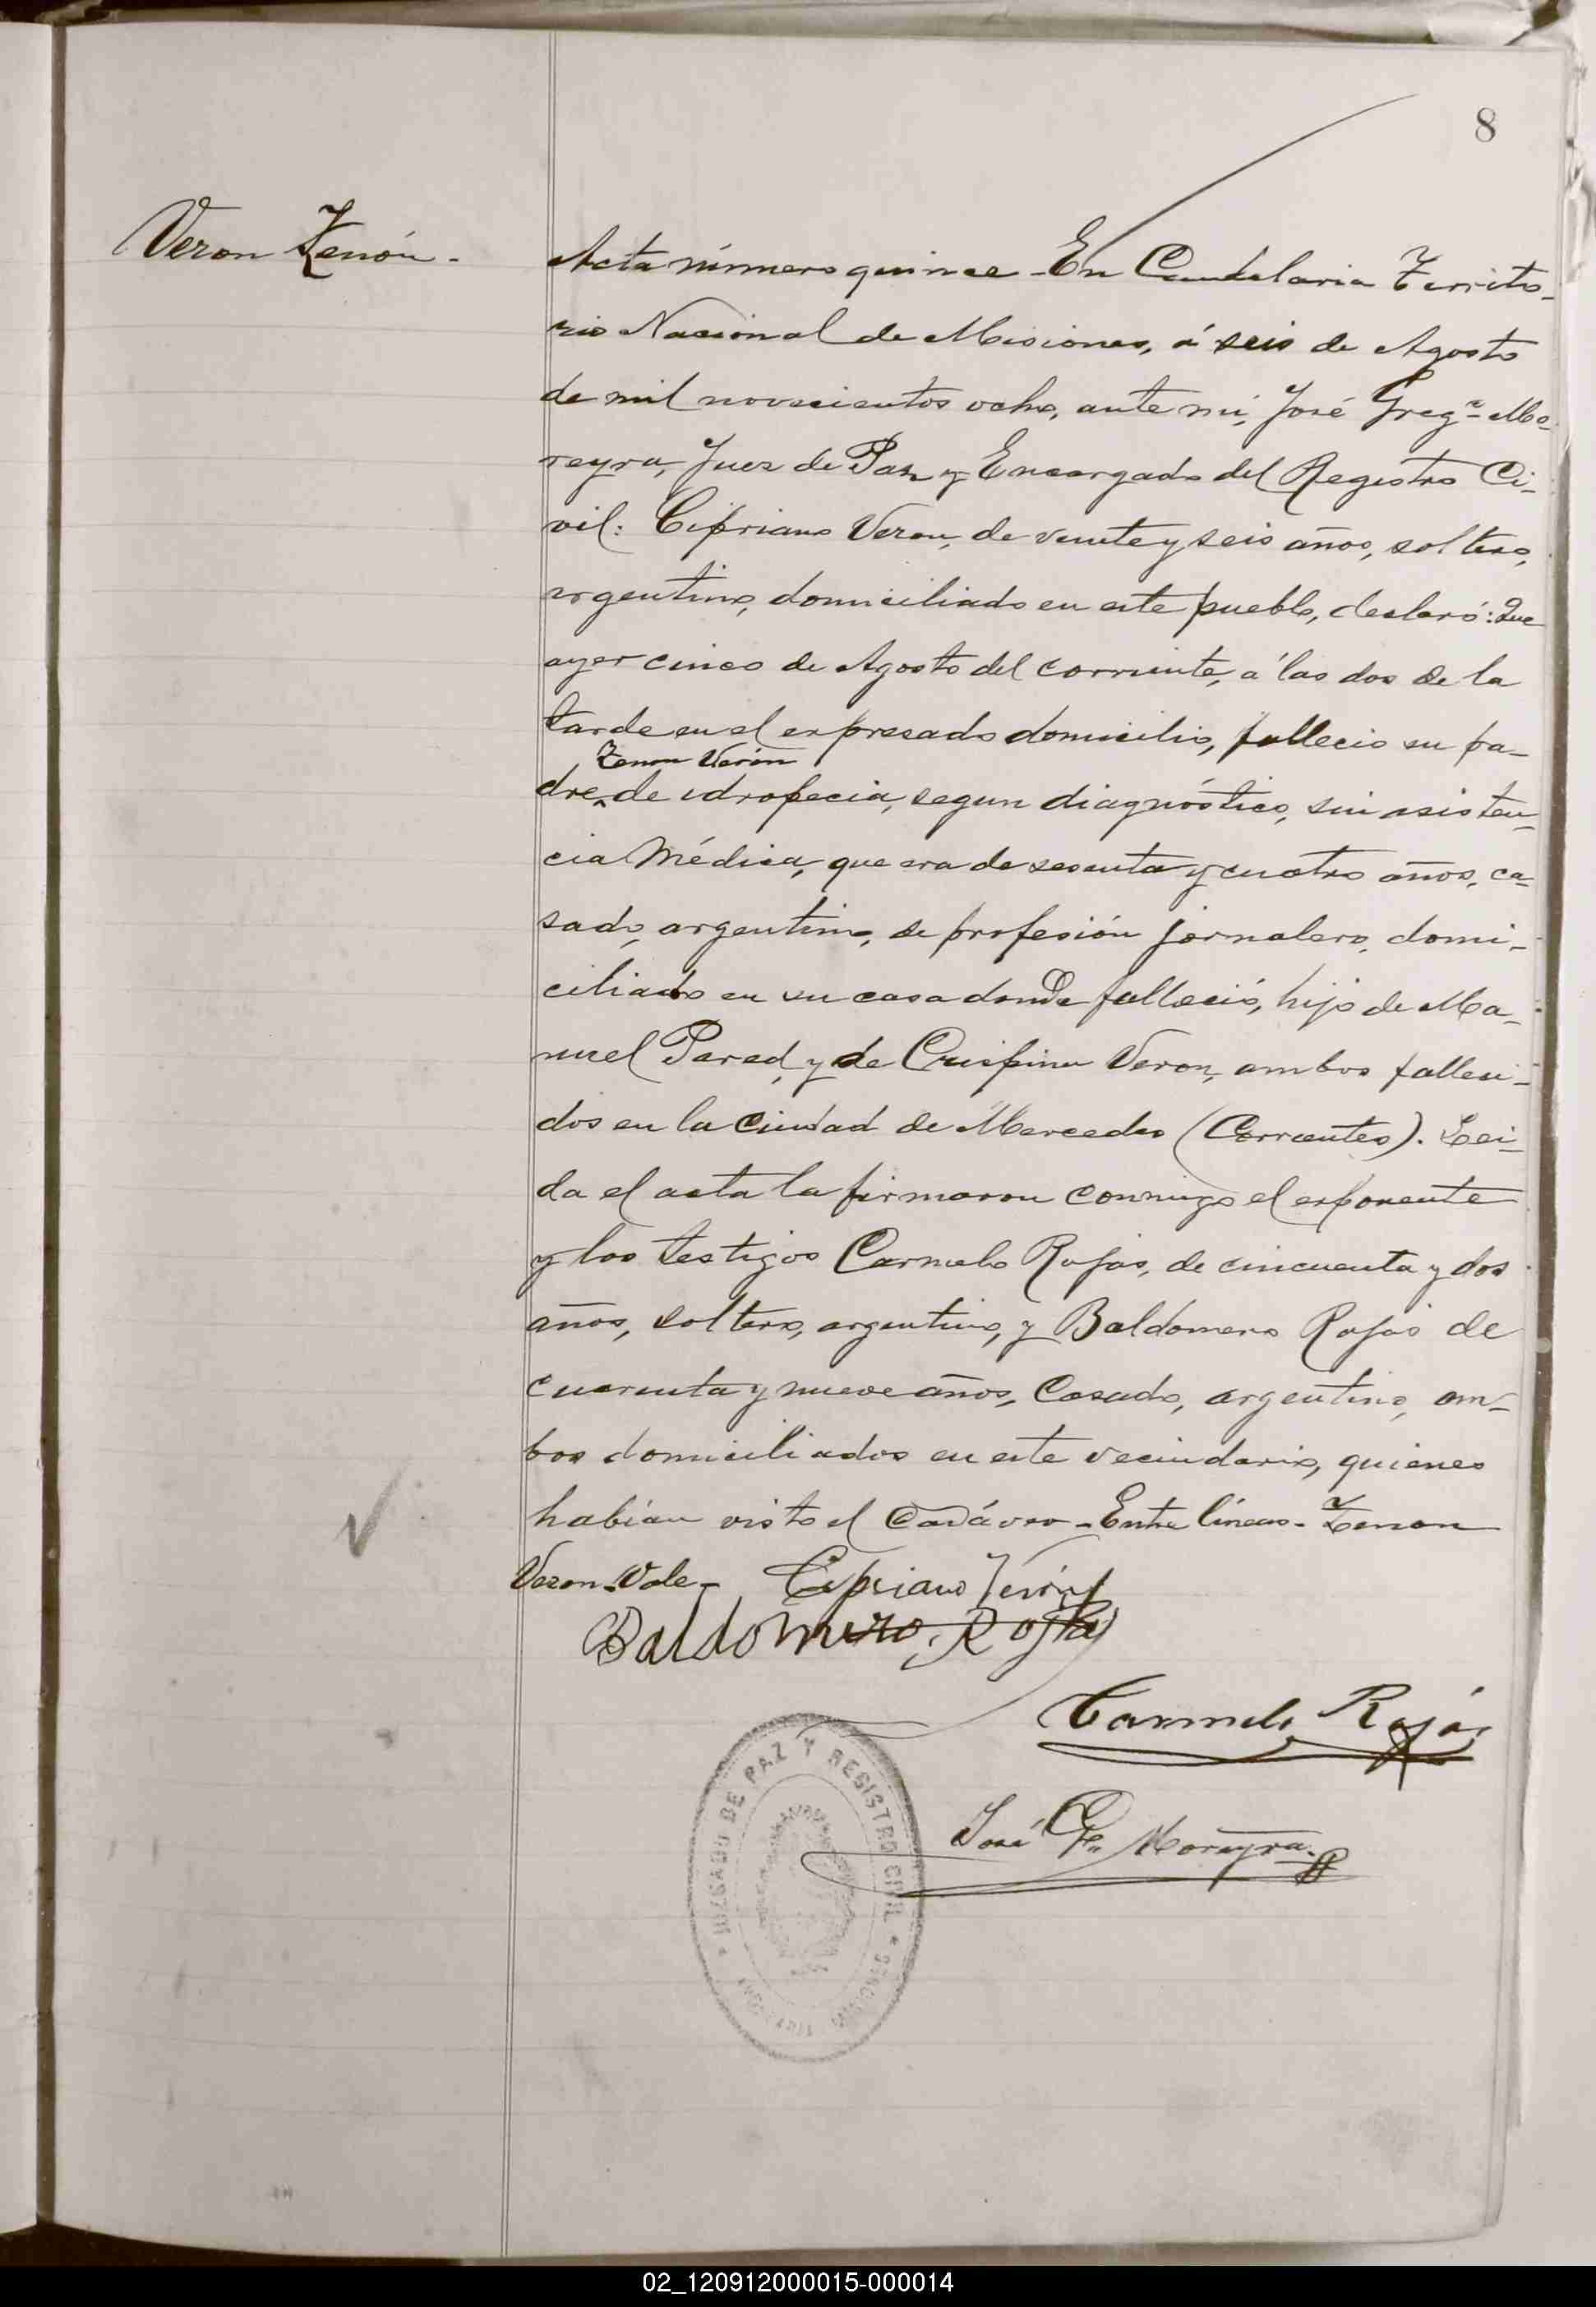 8
Veron Zenón.
Acta número quince - En Candelaria Territo-
rio Nacional de Misiones, á seis de Agosto
de mil novecientos ocho, ante mí, José Gregº Mo-
reyra, Juez de Paz y Encargado del Registro Ci-
vil: Cipriano Veron, de veinte y seis años, soltero,
argentino, domiciliado en este pueblo, declaró: Que
ayer cinco de Agosto del corriente, á las dos de la
tarde en el expresado domicilio, fallecio su pa-
Zenon Verón
dre, de idropecia, segun diagnóstico, sin asisten-
cia Médica, que era de sesenta y cuatro años, ca-
sado, argentino, de profesión jornalero, domi-
ciliado en su casa donde falleció, hijo de Ma-
nuel Pared, y de Crispina Veron, ambos falleci-
dos en la Ciudad de Mercedes (Corrientes). Lei-
da el acta la firmaron conmigo el exponente
y los testigos Carmelo Rojas, de cincuenta y dos
años, soltero, argentino, y Baldomero Rojas de
cuarenta y nueve años, Casado, argentino, am-
bos domiciliados en este vecindario, quienes
habían visto el Cadáver - Entre líneas - Zenon
Veron - Vale - Cipriano Verón
Baldomero Rojas
Carmelo Rojas
José G. Moreyra
JUZGADO DE PAZ Y REGISTRO CIVIL
02_120912000015-000014